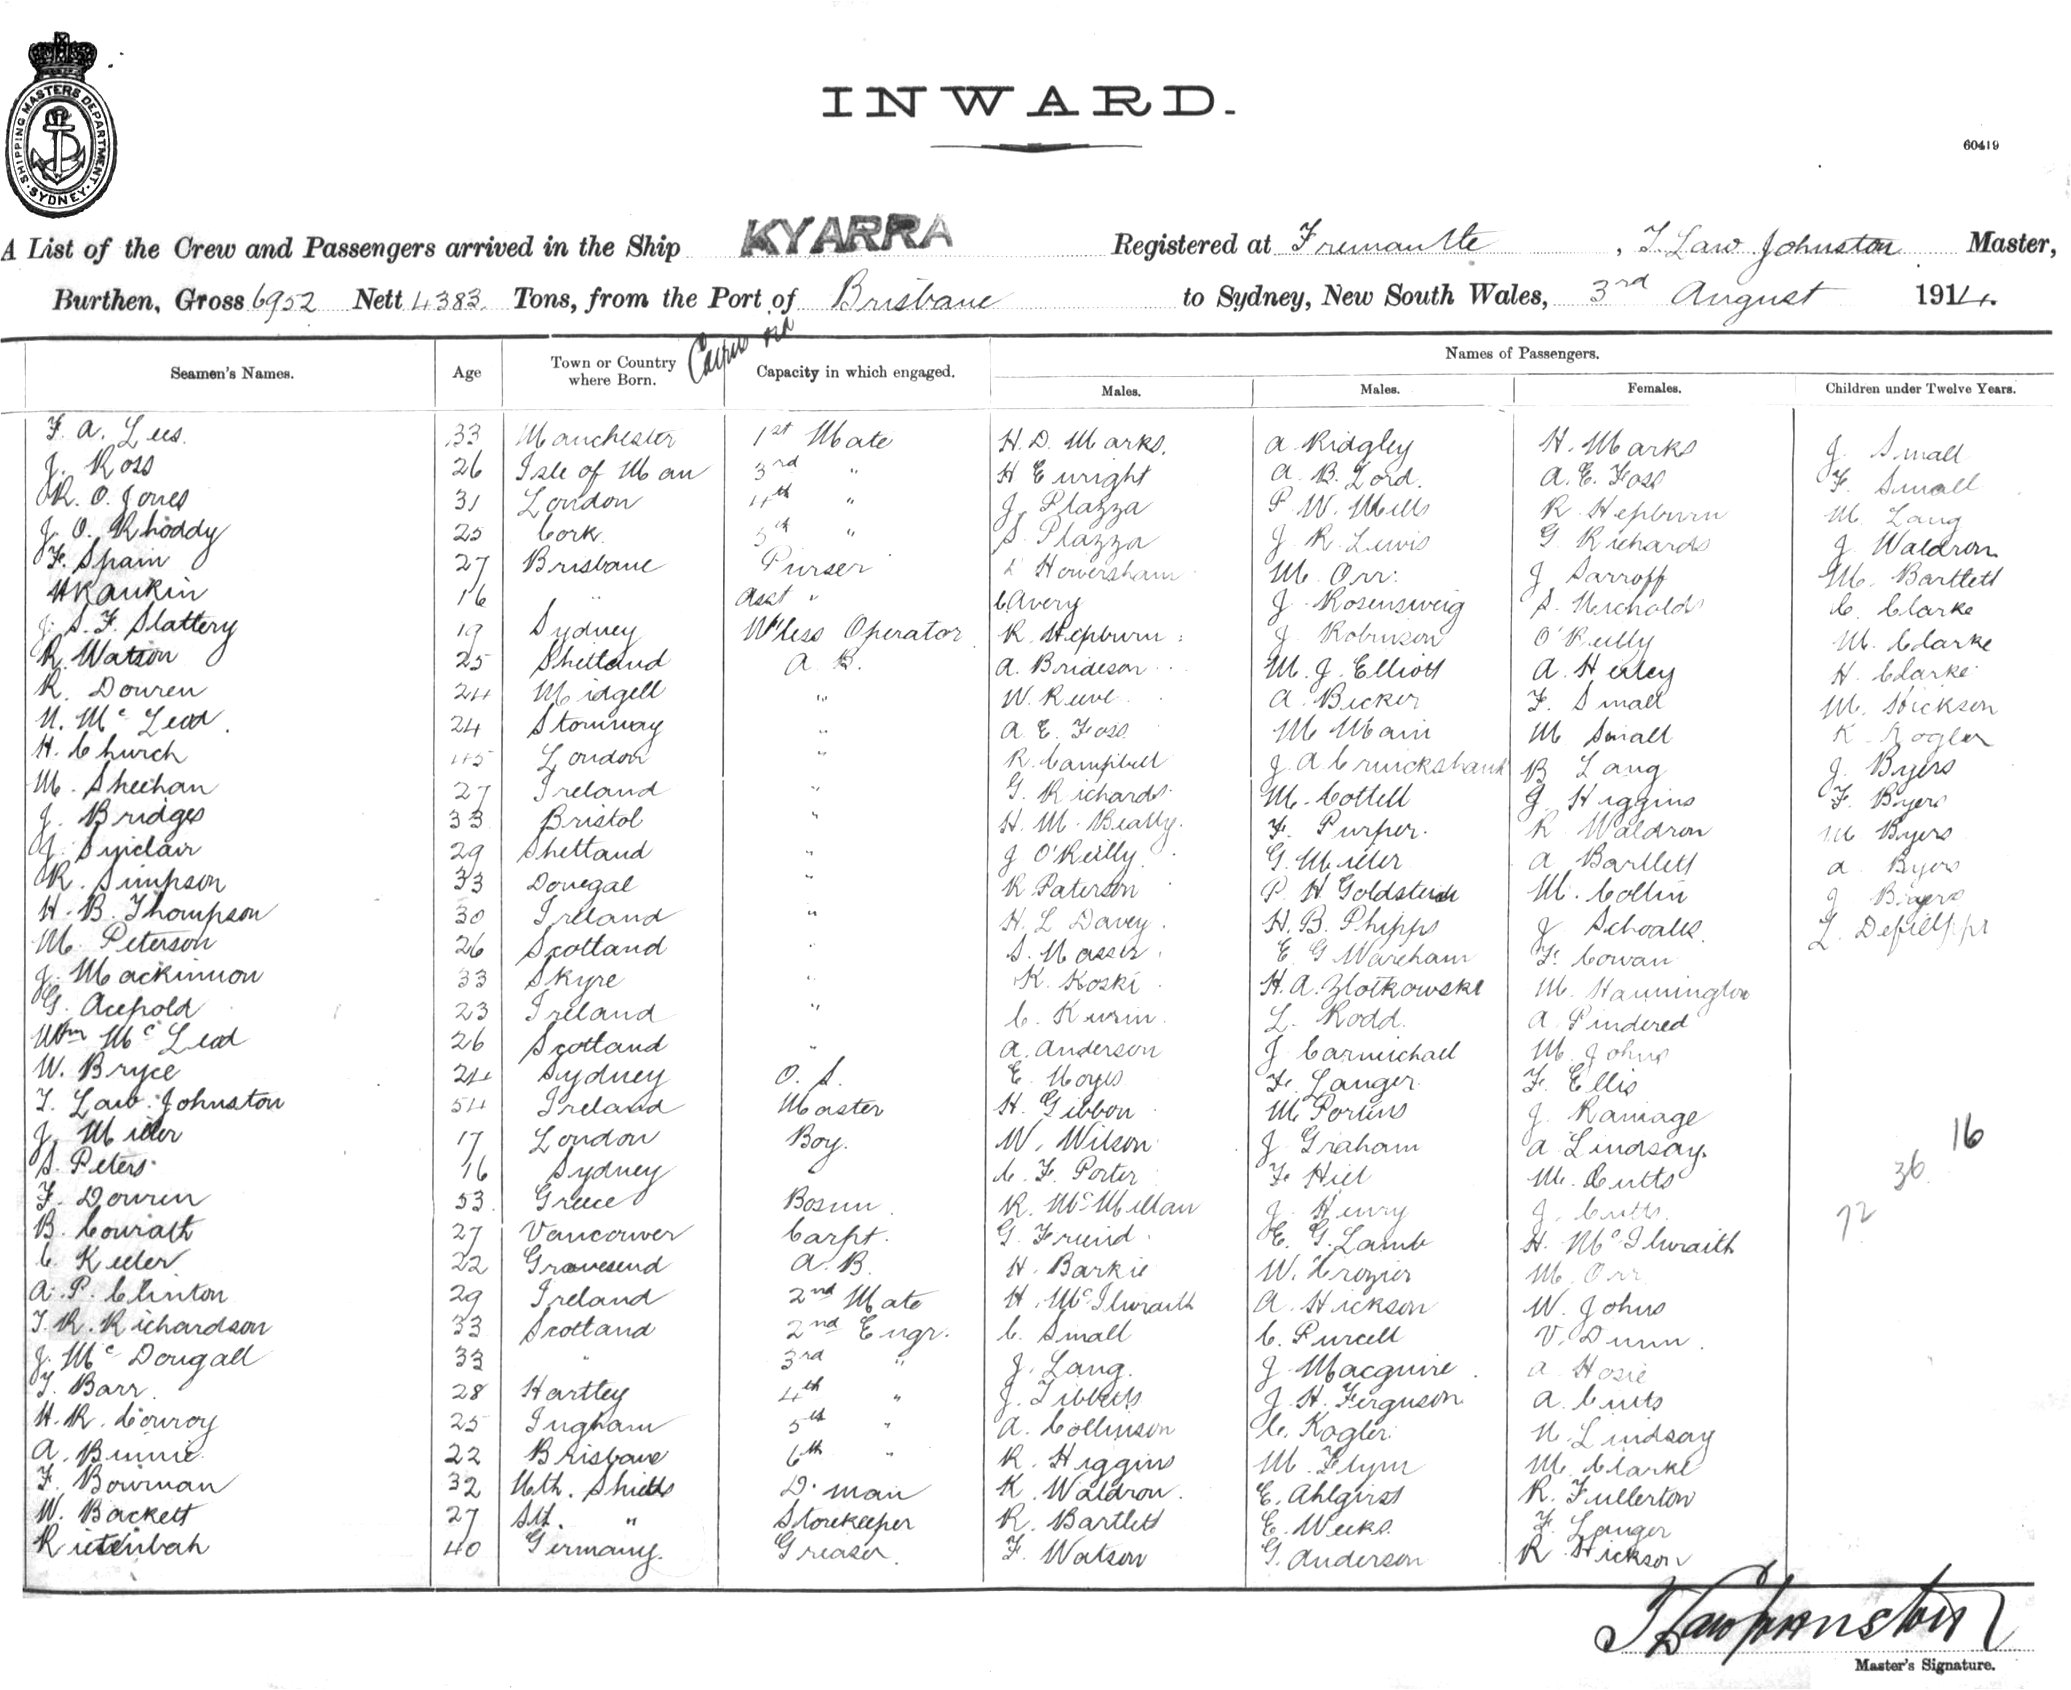 SHIPPING MASTERS DEPARTMENT · SYDNEY ·
INWARD.
60419
A List of the Crew and Passengers arrived in the Ship KYARRA Registered at Fremantle, T. Law Johnston Master,
Burthen, Gross 6952 Nett 4383 Tons, from the Port of Brisbane to Sydney, New South Wales, 3rd August 1914.
Seamen's Names. Age Town or Country where Born. Capacity in which engaged. Names of Passengers.
Males. Males. Females. Children under Twelve Years.
F. A. Lees. 33 Manchester 1st Mate H. D. Marks. A Ridgley H. Marks J. Small
J. Ross 26 Isle of Man 3rd " H Enright A. B. Lord. A. E. Foss F. Small
R. O. Jones 31 London 4th " J. Plazza P. W. Mills R. Hepburn M. Lang
J. O. Rhoddy 25 Cork. 5th " S. Plazza J. R. Lewis G Richards J Waldron
F. Spain 27 Brisbane Purser Howersham M. Orr. J Sarroff M. Bartlett
H Rankin 16 " Asst " C Avery J. Rosensweig S. Nicholds C. Clarke
J. S. F. Slattery 19 Sydney W'less Operator R. Hepburn J. Robinson O'Reilly M. Clarke
R. Watson 25 Shetland A. B. A. Brideson M. J. Elliott A. Hurley H. Clarke
R. Douren 24 Midgell " W. Reeve A. Bicker F. Small M. Hickson
N. McLeod. 24 Stornway " A. E. Foss M Main M Small K. Kogler
H. Church 45 London " R. Campbell J. A. Cruickshank B Lang J. Byers
M. Sheehan 27 Ireland " G. Richards M. Cottell J Higgins F. Byers
J. Bridges 33 Bristol " H. M. Beatty. F. Purper. R. Waldron M Byers
J. Sinclair 29 Shetland " J O'Reilly G. Miller A Bartlett A Byers
R. Simpson 33 Donegal " R Paterson P. H Goldstein M. Collin J Byers
H. B. Thompson 30 Ireland " H. L Davey. H. B. Phipps J Schoales. L. Defillippi
M. Peterson 26 Scotland " S. Nasser E G Wareham F. Cowan
J. Mackinnon 33 Skyre " K. Koski H. A. Zlotkowski M. Hannington
G. 23 Ireland " C. L. Rodd. A Pindered
Wm McLeod 26 Scotland " A. Anderson J Carmichael M. Johns
W. Bryce 24 Sydney O. S. E. Noyes F. Langer F. Ellis
T. Law. Johnston 54 Ireland Master H. Gibbon M J. Ramage
J. Miller 17 London Boy. W. Wilson J Graham A Lindsay. 16
S. Peters. 16 Sydney C. F. Porter F Hill M. Cutts 36
F. Douren 53 Greece Bosun R. McMillan J Henry J. Cutts. 72
B. Conrath 27 Vancouver Carpt. G. Friend E. G. Lamb H. McIlwraith
C. Keeler 22 Gravesend A. B. H. Barkie W. Crozier M. Orr
A. P. Clinton 29 Ireland 2nd Mate H. McIlwraith A. Hickson W. Johns
T. R. Richardson 33 Scotland 2nd Engr. C. Small C. Purcell V. Dunn.
J. McDougall 33 " 3rd " J. Lang. J Macguire. A Hosie
T. Barr 28 Hartley 4th " J. Tibbets J. H. Ferguson A. Cutts
H. R. Conroy 25 Ingham 5th " A. Collinson C. Kogler N. Lindsay
A. Binnie 22 Brisbane 6th " R. Higgins M. Flynn M. Clarke
F. Bowman 32 Nth. Shields D. man K. Waldron. E. Ahlgirst R. Fullerton
W. Backett 27 Sth. " Storekeeper R. Bartlett E. Weeks. F. Langer
Rietenbah 40 Germany. Greaser. F. Watson G. Anderson R. Hickson
T Law Johnston
Master's Signature.